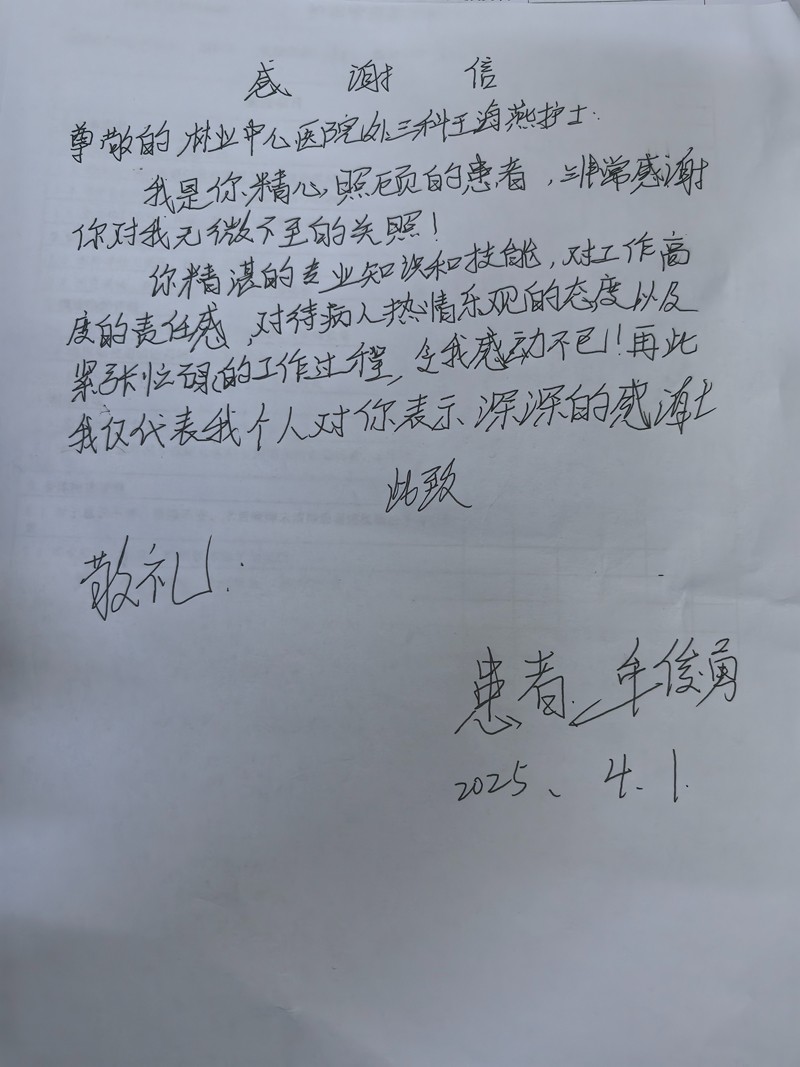 感谢信
尊敬的林业中心医院外三科王海燕护士:
我是你精心照顾的患者，非常感谢
你对我无微不至的关照!
你精湛的专业知识和技能，对工作高
度的责任感，对待病人热情乐观的态度以及
紧张忙碌的工作过程，令我感动不已!再此
我仅代表我个人对你表示深深的感谢
此致
敬礼!
患者 牟俊勇
2025、4.1.